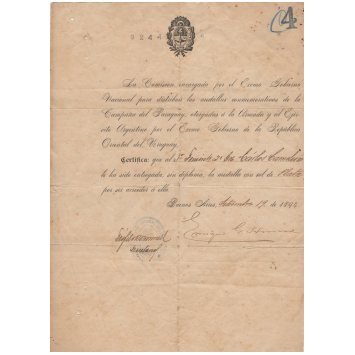 4
La Comision encargada por el Exmo Gobierno
Nacional para distribuir las medallas conmemorativas de la
Campaña del Paraguay, otorgadas á la Armada y al Ejér
cito Argentino por el Exmo Gobierno de la República
Oriental del Uruguay.
Certifica: que al Sr Teniente
le ha sido entregada, sin diploma, la medalla con sol de Plata
por ser acreedor á ella.
Buenos Aires, Setiembre 19 de 1894
Enrique
Secretario